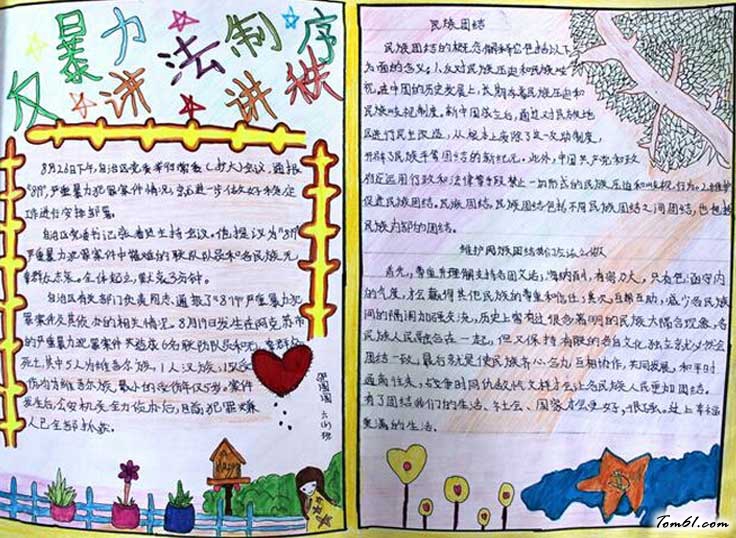 反暴力 讲法制 讲秩序
8月26日下午,自治区党委举行常委(扩大)会议,通报
"819"严重暴力犯罪案件情况,就进一步做好稳定
工作进行安排部署。
自治区党委书记张春贤主持会议。他提议为"819
严重暴力犯罪案件中罹难的联防队员和各民族无
辜群众志哀。全体起立,默哀3分钟。
自治区有关部门负责同志通报了"819"严重暴力犯
罪案件及其侦办的相关情况。8月19日发生在阿克苏市
的严重暴力犯罪案件共造成6名联防队员和
死亡,其中5人为维吾尔族,1人汉族,15
伤均为维吾尔族,最小的受伤年仅5岁。案件
发生后,公安机关全力侦办后,目前,犯罪嫌
人已全部抓获。
民族团结
民族团结的概念解释它包括以下
方面的含义:1、反对民族压迫和民族歧
视。在中国的历史发展上,长期存在着民族压迫和
民族歧视制度。新中国成立后,通过对民族地
区进行民主改造,从根本上废除了这一反动制度,
开辟了民族平等团结的新纪元。此外,中国共产党和政
府还运用行政和法律等手段禁止一切形式的民族压迫和歧视行为。2、维护
促进民族团结。民族团结。民族团结包括不同民族团结之间团结,也包括
民族内部的团结。
维护民族团结我应该怎么做
首先,尊重并理解支持各国文话;海纳百川,有容乃大,只有包涵宇内
的气度,才会赢得其他民族的尊重和信任;其次,互赖互助,减少各民族
间的隔阂加强交流,历史上常有过很多著明的民族大隔合现象,各
民族人民融合在一起,但又保持有限的各自文化独立就必然会
团结一致,最后就是使民族齐心合力互相协作,共同发展,和平时
通商往来,战争时同仇敌忾这样才会让各民族人民更加团结。
有了团结我们的生活、社会、国家才会更好,很强。过上幸福
美满的生活。
Happy
Tom61.com